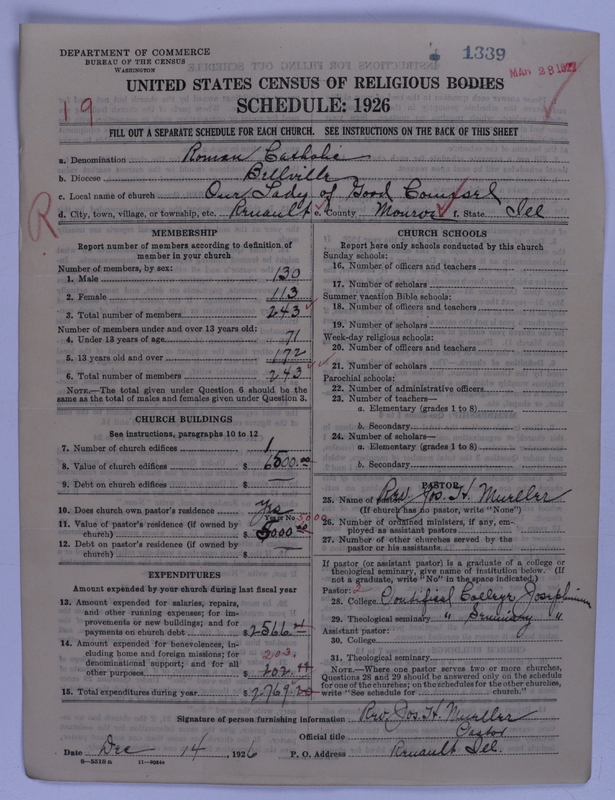 DEPARTMENT OF COMMERCE
BUREAU OF THE CENSUS
WASHINGTON
1339
MAR 28 1927
UNITED STATES CENSUS OF RELIGIOUS BODIES
SCHEDULE: 1926
19
FILL OUT A SEPARATE SCHEDULE FOR EACH CHURCH. SEE INSTRUCTIONS ON THE BACK OF THIS SHEET
a. Denomination Roman Catholic
b. Diocese Bellville
c. Local name of church Our Lady of Good Counsel
d. City, town, village, or township, etc. Renault e. County Monroe f. State Ill
R
MEMBERSHIP
Report number of members according to definition of
member in your church
Number of members, by sex:
1. Male 130
2. Female 113
3. Total number of members 243
Number of members under and over 13 years old:
4. Under 13 years of age 71
5. 13 years old and over 172
6. Total number of members 243
NOTE.—The total given under Question 6 should be
same as the total of males and females given under Question 3.
CHURCH BUILDINGS
See instructions, paragraphs 10 to 12
7. Number of church edifices 1
8. Value of church edifices $ 6500.00
9. Debt on church edifices $ —
10. Does church own pastor's residence Yes
Yes or No 5000
11. Value of pastor's residence (if owned by
church) $ 5000.00
12. Debt on pastor's residence (if owned by
church) $ —
EXPENDITURES
Amount expended by your church during last fiscal year
13. Amount expended for salaries, repairs,
and other running expenses; for im-
provements or new buildings; and for
payments on church debt $ 2566
14. Amount expended for benevolences, in-
cluding home and foreign missions; for 203
denominational support; and for all
other purposes $ 202
15. Total expenditures during year $ 2769
CHURCH SCHOOLS
Report here only schools conducted by this church
Sunday schools:
16. Number of officers and teachers
17. Number of scholars
Summer vacation Bible schools:
18. Number of officers and teachers
19. Number of scholars
Week-day religious schools:
20. Number of officers and teachers
21. Number of scholars
Parochial schools:
22. Number of administrative officers
23. Number of teachers—
a. Elementary (grades 1 to 8)
b. Secondary
24. Number of scholars—
a. Elementary (grades 1 to 8)
b. Secondary
PASTOR
25. Name of pastor Rev Jos. H. Mueller
(If church has no pastor, write "None")
26. Number of ordained ministers, if any, em-
ployed as assistant pastors
27. Number of other churches served by the
pastor or his assistants
If pastor (or assistant pastor) is a graduate of a college or
theological seminary, give name of institution below. (If
not a graduate, write "No" in the space indicated.)
Pastor: 2
28. College Pontifical College Josephinum
29. Theological seminary " Seminary "
Assistant pastor:
30. College
31. Theological seminary
NOTE.—Where one pastor serves two or more churches,
Questions 28 and 29 should be answered only on the schedule
for one of the churches; on the schedules for the other churches,
write "See schedule for church."
Signature of person furnishing information Rev. Jos. H. Mueller
Official title Pastor
Date Dec 14, 1926 P. O. Address Renault Ill.
8—5518a 11—9084a